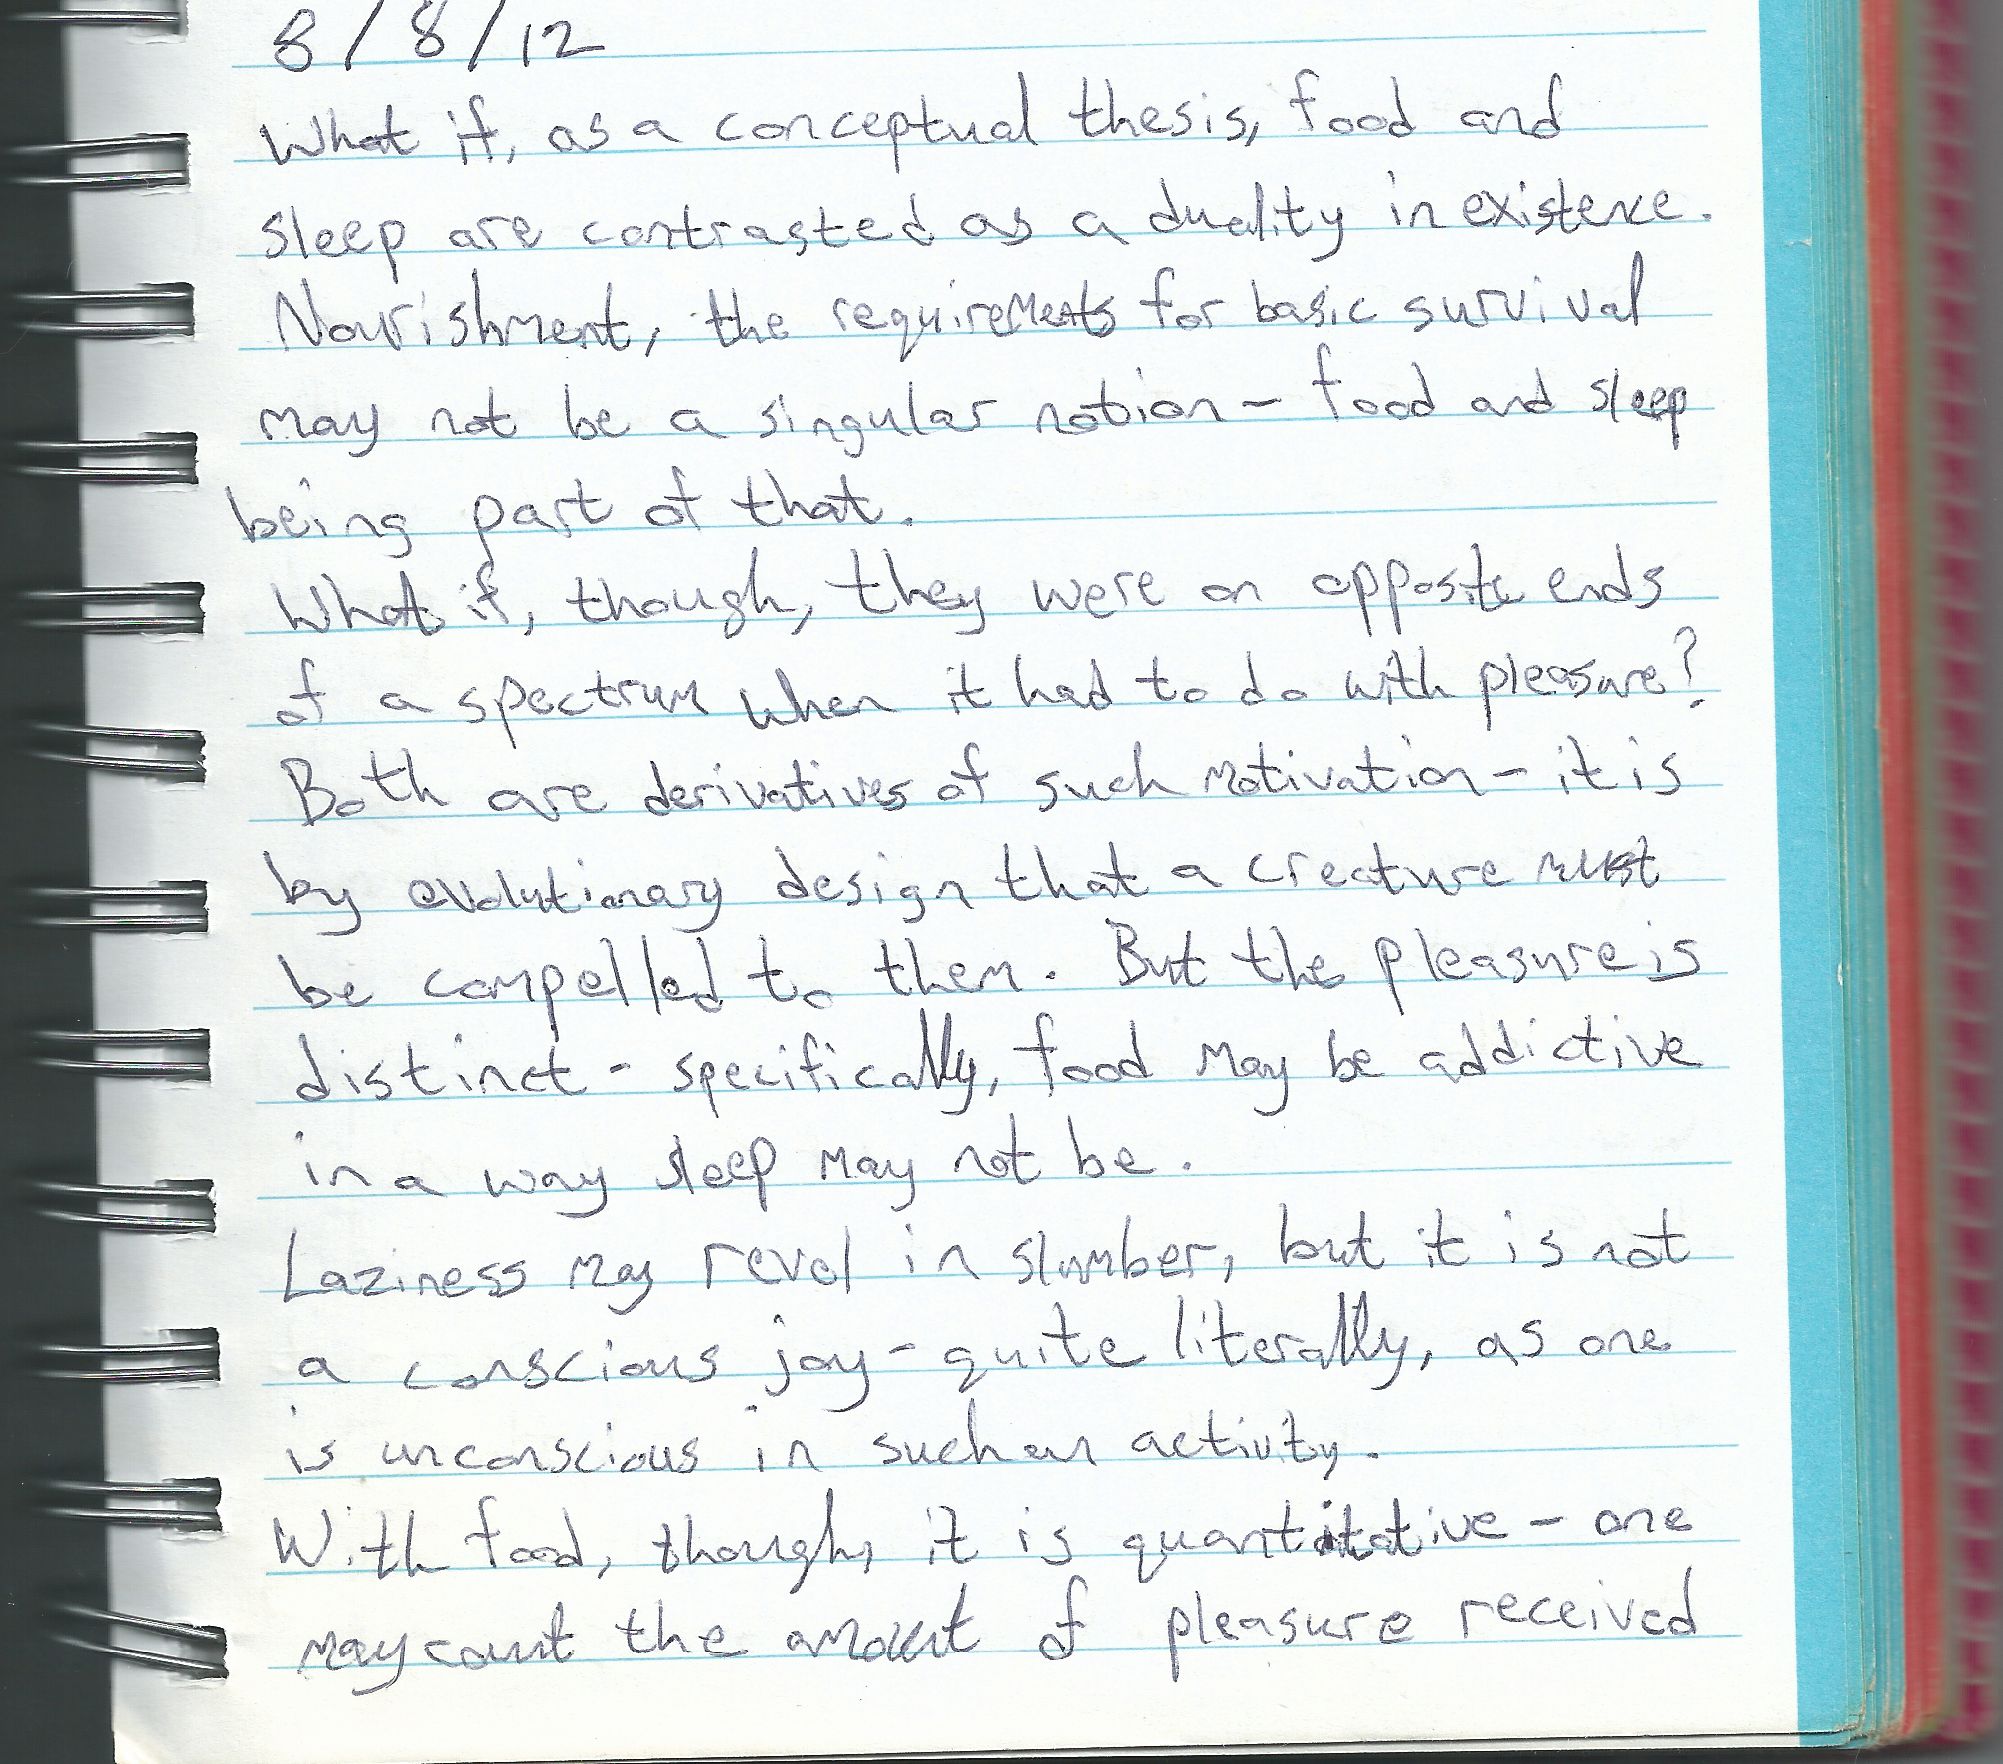 8/8/12
What if, as a conceptual thesis, food and
sleep are contrasted as a duality in existence.
Nourishment, the requirements for basic survival
may not be a singular notion - food and sleep
being part of that.
What if, though, they were on opposite ends
of a spectrum when it had to do with pleasure?
Both are derivatives of such motivation - it is
by evolutionary design that a creature must
be compelled to them. But the pleasure is
distinct - specifically, food may be addictive
in a way sleep may not be.
Laziness may revel in slumber, but it is not
a conscious joy - quite literally, as one
is unconscious in such an activity.
With food, though, it is quantitative - one
may count the amount of pleasure received